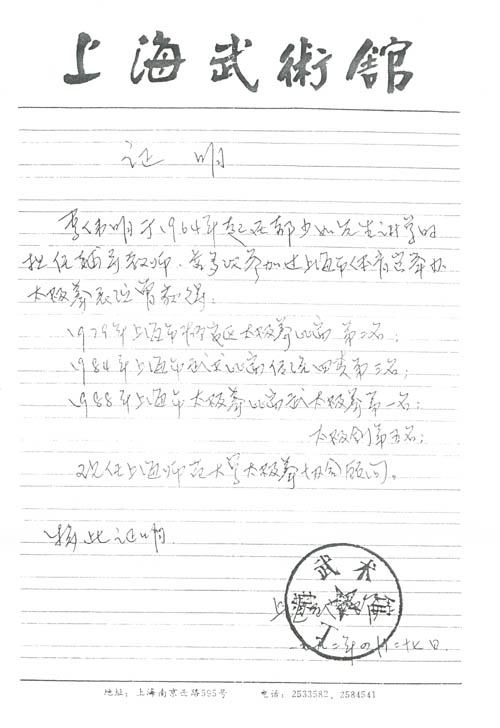 上海武術館
证明
李伟明于1964年起在郝少如先生讲学时
担任辅导教师。曾多次参加过上海市体育宫举办
太极拳表演曾获得：
1979年上海市杨浦区太极拳比赛第二名；
1984年上海市武术比赛传统四类第三名；
1988年上海市太极拳比赛武太极拳第一名；
太极剑第五名；
现任上海师范大学太极拳协会顾问。
特此证明
上海武术馆
一九九二年四月二十七日
地址：上海南京西路595号 电话：2533582，2584541